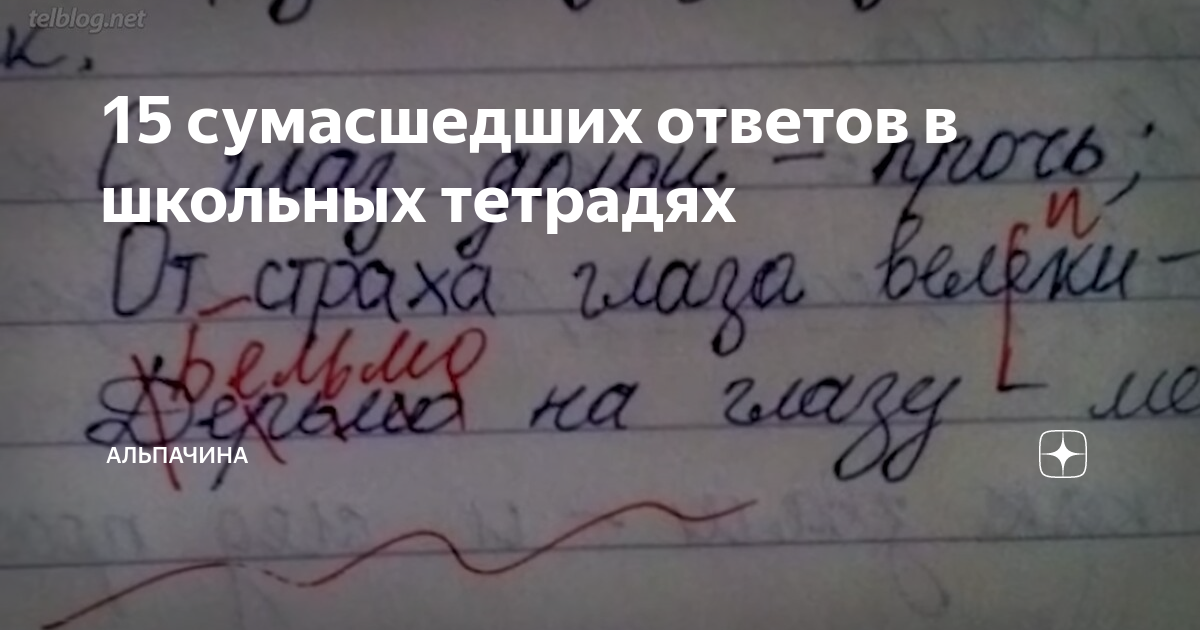 telblog.net
к.
15 сумасшедших ответов в
школьных тетрадях
С глаз долой – прочь;
п
От страха глаза велеки –
Бельмо
Дерьмо на глазу – ме
АЛЬПАЧИНА